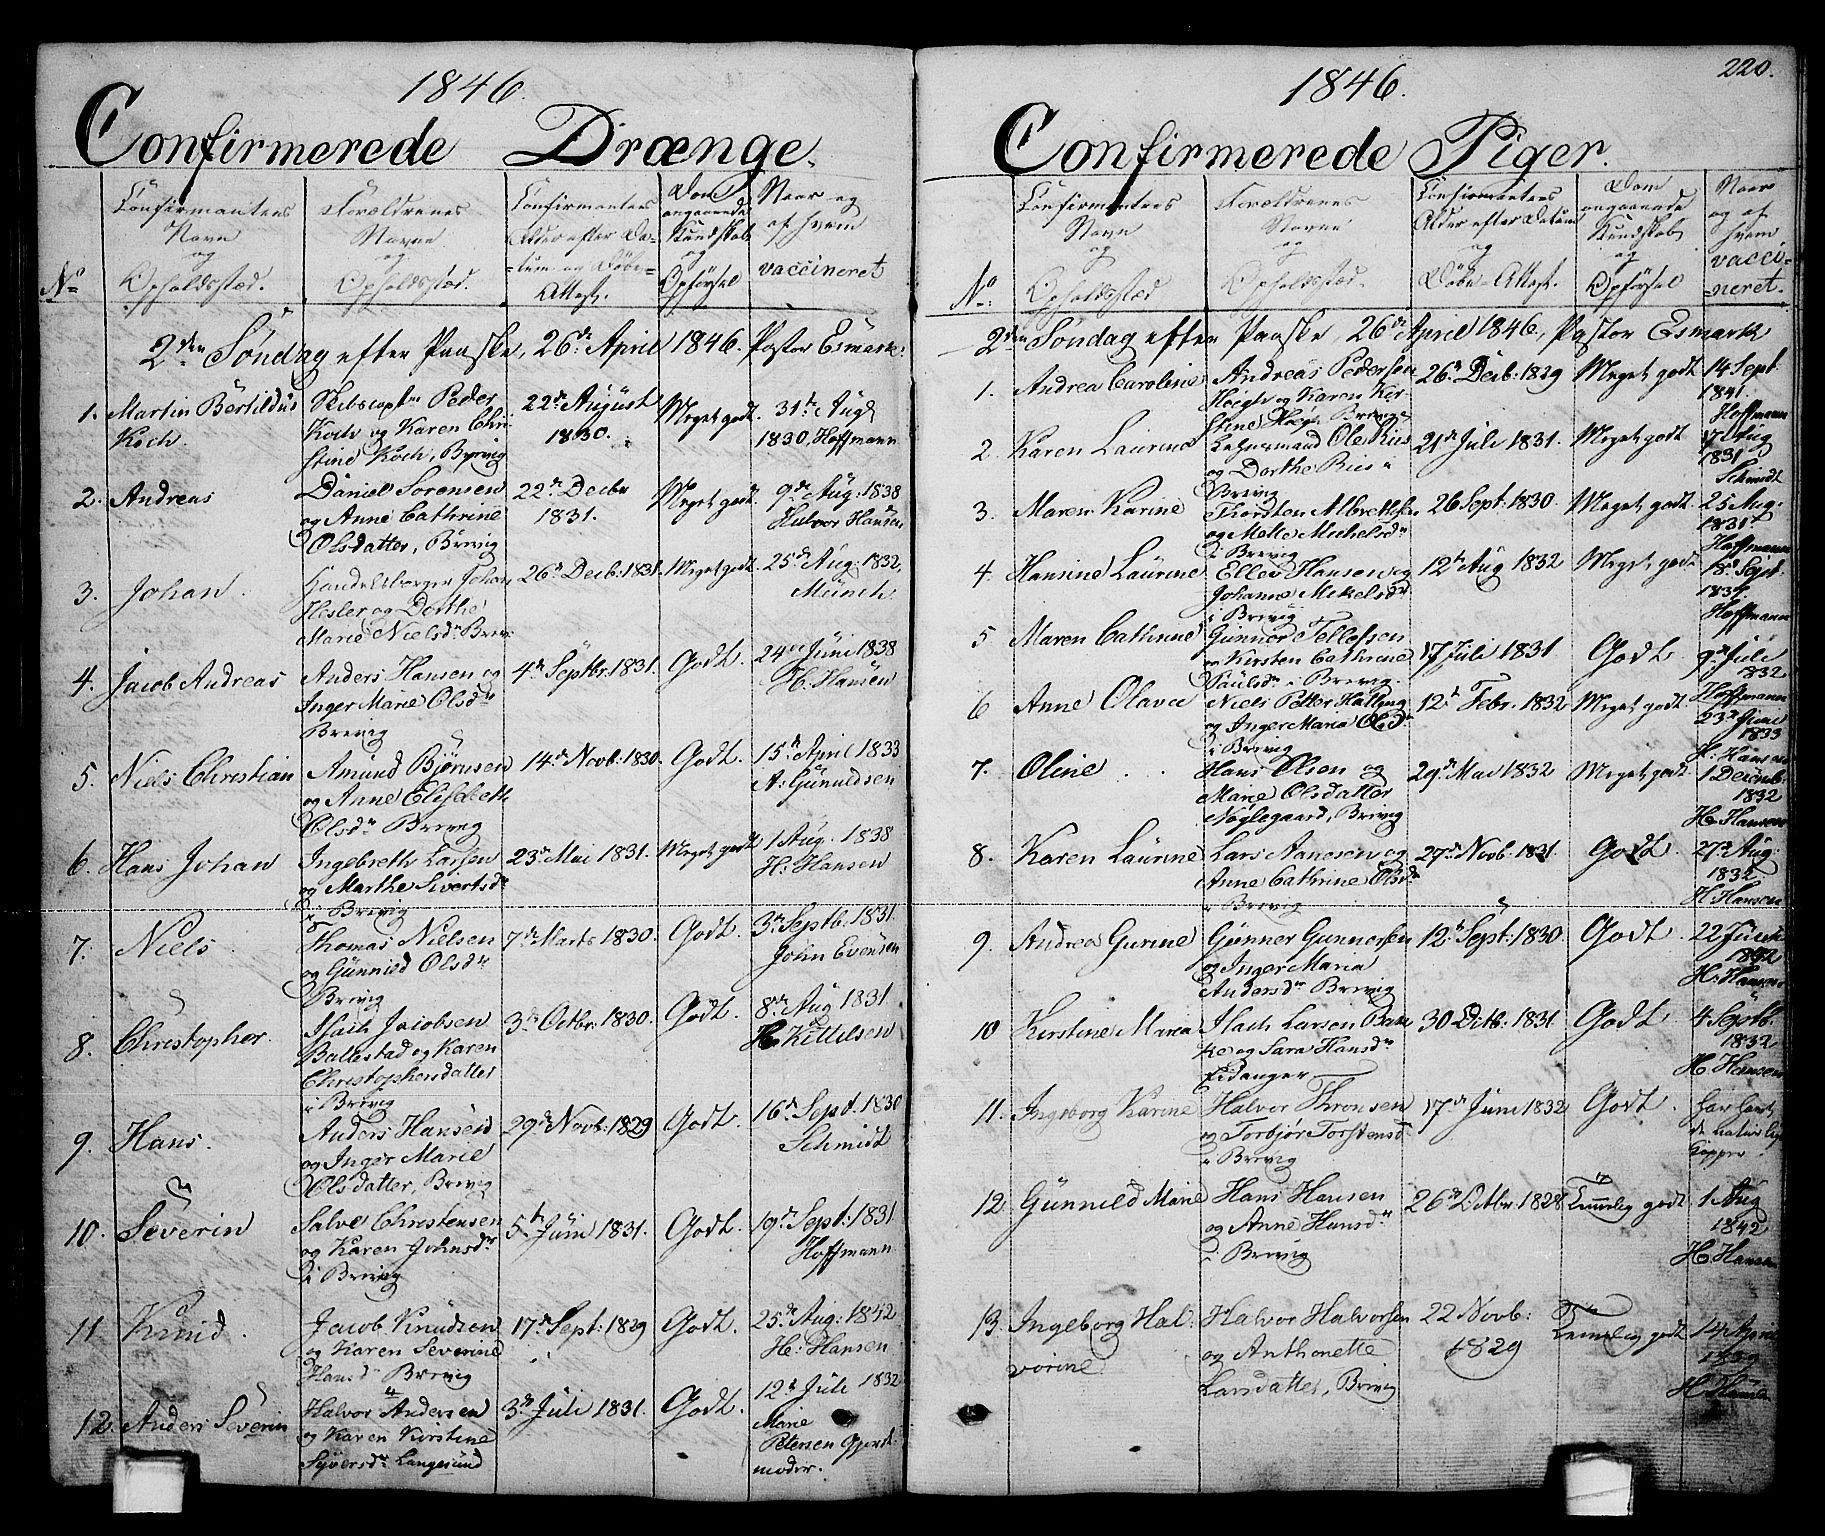 1846.
Confirmerede Drænge.
No
Confirmantens
Navn
og
Opholdssted.
Forældrenes
Navne
og
Opholdssted.
Confirmantens
Alder efter Da-
tum og Døbe-
Attest.
Dom
angaaende
Kundskab
og
Opførsel
Naar og
af hvem
vaccineret
2den Søndag efter Paaske, 26de April 1846. Pastor Esmark.
1. Martin Bertildus
Koch.
Skibscaptn Peder
Koch og Karen Chri-
stine Koch, Brevig
22de August
1830.
Meget godt.
31te Aug
1830, Hoffmann
2. Andreas
Daniel Sørensen
og Anne Cathrine
Olsdatter, Brevig
22de Decbr
1831.
Meget godt.
9de Aug: 1838
Halvor Hansen
3. Johan.
Handelsborger Johan
Hesler og Dorthe
Marie Nielsdr Brev:
26de Decb: 1831.
Meget godt.
25de Aug: 1832,
Münch
4. Jacob Andreas
Anders Hansen og
Inger Marie Olsdr
Brevig
4de Septbr: 1831.
Godt.
24de Juni 1838
H: Hansen
5. Niels Christian
Amund Bjørnsen
og Anne Elisabeth
Olsdr Brevig
14de Novb: 1830.
Godt.
15de April 1833
A: Gunuldsen
6. Hans Johan
Ingebreth Larsen
og Marthe Sivertsdr
i Brevig
23de Mai 1831.
Meget godt
1 Aug. 1838
H: Hansen
7. Niels.
Thomas Nielsen
og Gunnild Olsdr
Brevig
7de Marts 1830.
Godt.
3de Septb: 1831.
John Evensen
8. Christopher.
Isach Jacobsen
Ballestad og Karen
Christophersdatter
i Brevig
3de Octbr: 1830.
Godt.
8de Aug 1831.
H Kittelsen
9. Hans.
Anders Hansen
og Inger Marie
Olsdatter, Brevig
29de Novb: 1829
Godt.
16de Sept. 1830
Schmidt
10. Severin
Salve Christensen
og Karen Johnsdr
i Brevig
5te Juni 1831.
Godt.
19de Sept: 1831
Hoffmann
11. Knud.
Jacob Knudsen
og Karen Severine
Hansd Brevig
17de Sept: 1829
Godt.
25de Aug: 1842
H: Hansen
12. Anders Severin
Halvor Andersen
og Karen Kirstine
Syversdr Langesund
3de Juli 1831.
Godt.
12te Juli 1832
Marie
Petersen Gjord-
moder.
220.
1846.
Confirmerede Piger.
No
Confirmantens
Navn
og
Opholdssted
Forældrenes
Navne
og
Opholdssted.
Confirmantens
Alder efter Datum
og
Døbe-Attest.
Dom
angaaende
Kundskab
og
Opførsel
Naar
og af
hvem
vacci-
neret.
2den Søndag efter Paaske, 26de April 1846, Pastor Esmark
1. Andrea Caroline
Andreas Pedersen
Høegh og Karen Ker-
stine Høeg Brevig
26de Decb: 1829
Meget godt
14 Sept
1841.
Hoffmann
2. Karen Laurine
Lehnsmand Ole Riis
og Dorthe Riis i
Brevig
21de Juli 1831.
Meget godt
17 Aug
1831
Schmidt
3. Maren Karine
Thorsten Albrethsen
og Mette Michelsdr
i Brevig
26 Sept: 1830.
Meget godt.
25 Aug:
1831
Hoffmann
4. Hansine Laurine
Ellev Hansen og
Johanne Mikelsdr
i Brevig
12te Aug 1832
Meget godt
18de Sept.
Hoffmann
5 Maren Cathrine
Gunner Tellefsen
og Kirsten Cathrine
Paulsdr i Brevig.
17 Juli 1831
Godt.
9de Juli
1832
Hoffmann
6 Anne Olava
Niels Petter Halling
og Inger Maria Olsdr
i Brevig
12te Febr. 1832
Meget godt.
23de Juni
1833
H. Hansen
7. Oline
Hans Olsen og
Marie Olsdatter
Nøglegaard, Brevig
29de Mai 1832
Meget godt.
1 Decemb
1832
H. Hansen
8. Karen Laurine
Lars Aanesen og
Anne Cathrine Olsdr
i Brevig
27de Novb: 1831.
Godt.
27de Aug:
1832.
H Hansen
9. Andrea Gurine
Gunner Gunnersen
og Inger Maria
Andersdr Brevig
12te Sept: 1830.
Godt.
22 Juni
1832
H: Hansen
10 Kirstine Maria
Isach Larsen Bak-
ke og Sara Hansdr
Eidanger
30 Octb: 1831.
Godt
4 Septb.
1832
H Hansen
11. Ingeborg Karine
Halvor Thronsen
og Torbjør Torstensd.
i Brevig
17de Juni 1832
Godt.
har havt
de naturlige
Kopper.
12. Gunnild Marie
Hans Hansen
og Anne Hansdr
i Brevig
26de Octbr: 1828.
Temmelig godt
1 Aug
1842
H. Hansen
13. Ingeborg Hal-
vorine.
Halvor Halvorsen
og Anthonette
Larsdatter, Brevig
22 Novb:
1829
Temmelig godt
14 April
H. Hansen